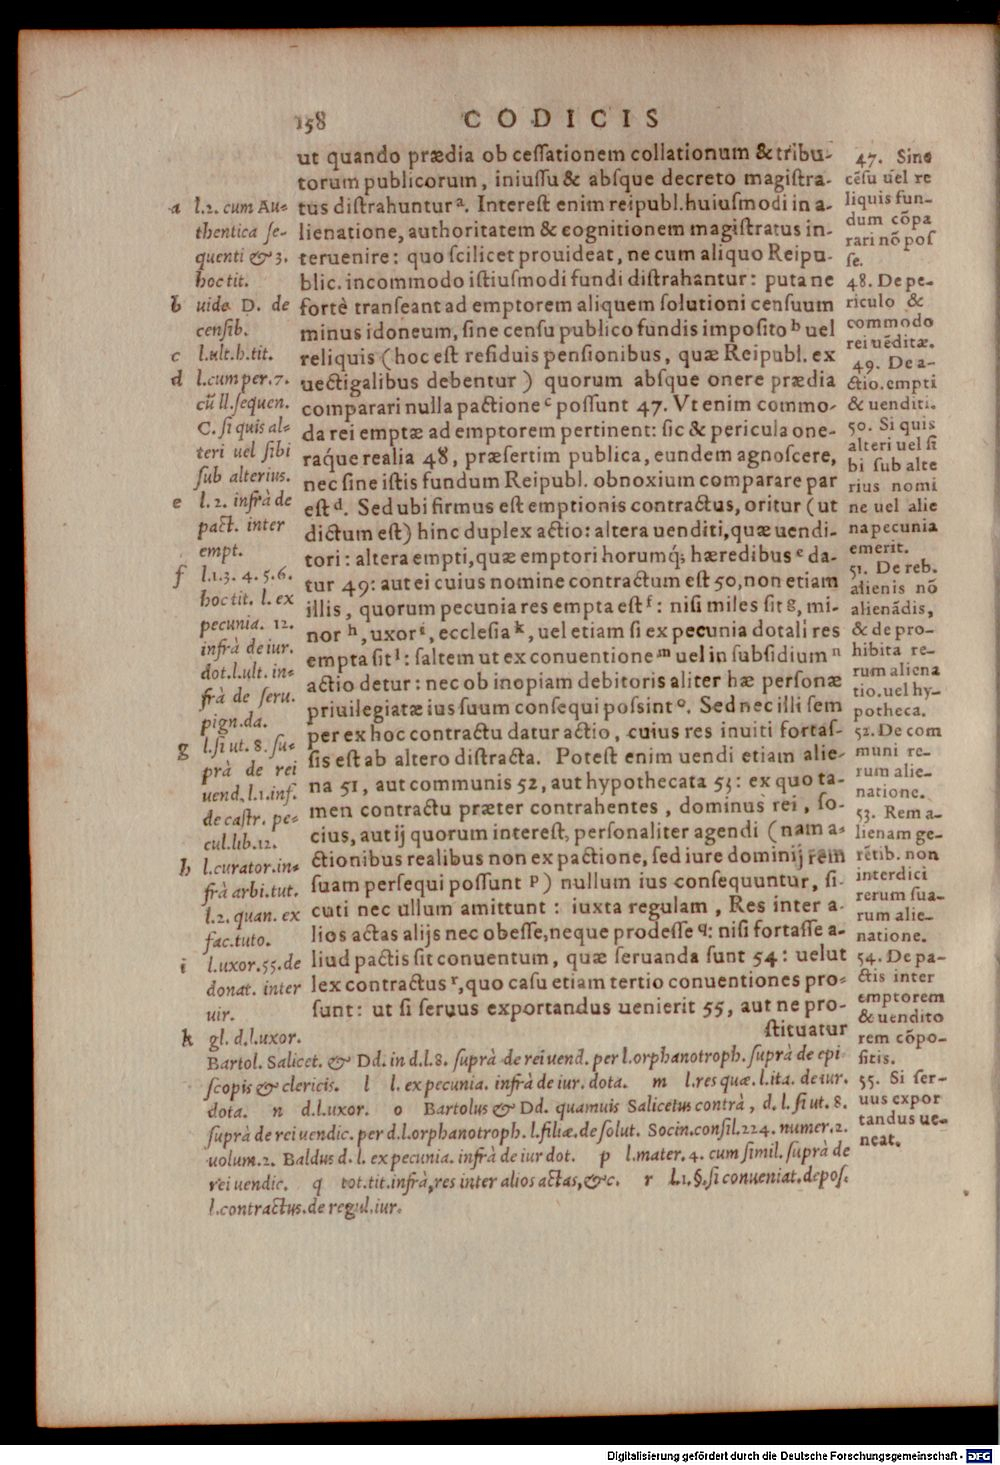 158 CODICIS
ut quando prædia ob cessationem collationum & tribu-
torum publicorum, iniussu & absque decreto magistra-
tus distrahuntur a. Interest enim reipubl. huiusmodi in a-
lienatione, authoritatem & cognitionem magistratus in-
teruenire: quo scilicet prouideat, ne cum aliquo Reipu-
blic. incommodo istiusmodi fundi distrahantur: puta ne
fortè transeant ad emptorem aliquem solutioni censuum
minus idoneum, sine censu publico fundis imposito b uel
reliquis (hoc est residuis pensionibus, quæ Reipubl. ex
uectigalibus debentur) quorum absque onere prædia
comparari nulla pactione c possunt 47. Vt enim commo-
da rei emptæ ad emptorem pertinent: sic & pericula one-
raq́ue realia 48, præsertim publica, eundem agnoscere,
nec sine istis fundum Reipubl. obnoxium comparare par
est d. Sed ubi firmus est emptionis contractus, oritur (ut
dictum est) hinc duplex actio: altera uenditi, quæ uendi-
tori: altera empti, quæ emptori horumq́; hæredibus e da-
tur 49: aut ei cuius nomine contractum est 50, non etiam
illis, quorum pecunia res empta est f: nisi miles sit g, mi-
nor h, uxor i, ecclesia k, uel etiam si ex pecunia dotali res
empta sit l: saltem ut ex conuentione m uel in subsidium n
actio detur: nec ob inopiam debitoris aliter hæ personæ
priuilegiatæ ius suum consequi possint o. Sed nec illi sem
per ex hoc contractu datur actio, cuius res inuiti fortas-
sis est ab altero distracta. Potest enim uendi etiam alie-
na 51, aut communis 52, aut hypothecata 53: ex quo ta-
men contractu præter contrahentes, dominus rei, so-
cius, aut ij quorum interest, personaliter agendi (nam a-
ctionibus realibus non ex pactione, sed iure dominij rem
suam persequi possunt p) nullum ius consequuntur, si-
cuti nec ullum amittunt: iuxta regulam, Res inter a-
lios actas alijs nec obesse, neque prodesse q: nisi fortasse a-
liud pactis sit conuentum, quæ seruanda sunt 54: uelut
lex contractus r, quo casu etiam tertio conuentiones pro-
sunt: ut si seruus exportandus uenierit 55, aut ne pro-
stituatur
a l.2. cum Au-
thentica se-
quenti & 3.
hoc tit.
b uide D. de
censib.
c l.ult.h.tit.
d l.cum per.7.
cū ll.sequen.
C. si quis al-
teri uel sibi
sub alterius.
e l.2. infrà de
pact. inter
empt.
f l.1.3.4.5.6.
hoc tit. l. ex
pecunia. 12.
infrà de iur.
dot.l.ult. in-
frà de seru.
pign.da.
g l.si ut. 8. su-
prà de rei
uend. l.1.inf.
de castr. pe-
cul.lib.12.
h l.curator.in-
frà arbi.tut.
l.2. quan. ex
fac.tuto.
i l.uxor.55.de
donat. inter
uir.
k gl. d.l.uxor.
Bartol. Salicet. & Dd. in d.l.8. suprà de rei uend. per l.orphanotroph. suprà de epi
scopis & clericis. l l. ex pecunia. infrà de iur. dota. m l.res quæ. l.ita. de iur.
dota. n d.l.uxor. o Bartolus & Dd. quamuis Salicetus contrà, d. l. si ut. 8.
suprà de rei uendic. per d.l.orphanotroph. l.filiæ.de solut. Socin.consil.224. numer.2.
uolum.2. Baldus d. l. ex pecunia. infrà de iur dot. p l.mater.4. cum simil. suprà de
rei uendic. q tot.tit.infrà, res inter alios actas, &c. r l.1.§.si conueniat.depos.
l.contractus.de regul.iur.
47. Sine
cēsu uel re
liquis fun-
dum cōpa
rari nō pos
se.
48. De pe-
riculo &
commodo
rei uēditæ.
49. De a-
ctio. empti
& uenditi.
50. Si quis
alteri uel si
bi sub alte
rius nomi
ne uel alie
na pecunia
emerit.
51. De reb.
alienis nō
alienādis,
& de pro-
hibita re-
rum aliena
tio. uel hy-
potheca.
52. De com
muni re-
rum alie-
natione.
53. Rem a-
lienam ge-
rētib. non
interdici
rerum sua-
rum alie-
natione.
54. De pa-
ctis inter
emptorem
& uendito
rem cōpo-
sitis.
55. Si ser-
uus expor
tandus ue-
neat.
Digitalisierung gefördert durch die Deutsche Forschungsgemeinschaft - DFG